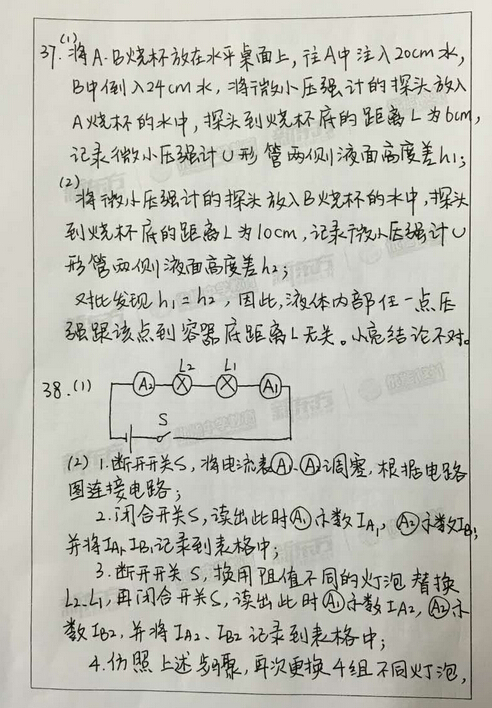 37.(1)将A、B烧杯放在水平桌面上,往A中注入20cm水,
B中倒入24cm水,将微小压强计的探头放入
A烧杯的水中,探头到烧杯底的距离L为6cm,
记录微小压强计U形管两侧液面高度差h1;
(2)
将微小压强计的探头放入B烧杯的水中,探头
到烧杯底的距离L为10cm,记录微小压强计U
形管两侧液面高度差h2;
对批发现h1=h2,因此,液体内部任一点压
强跟该点到容器底距离L无关。小亮结论不对。
38.(1)
A2 L2 L1 A1
S
(2) 1.断开开关S,将电流表A1、A2调零,根据电路
图连接电路;
2.闭合开关S,读出此时A1示数IA1,A2示数IB1,
并将IA1、IB1记录到表格中;
3.断开开关S,换用阻值不同的灯泡替换
L2、L1,再闭合开关S,读出此时A1示数IA2,A2示
数IB2,并将IA2、IB2记录到表格中;
4.仿照上述步骤,再次更换4组不同灯泡,